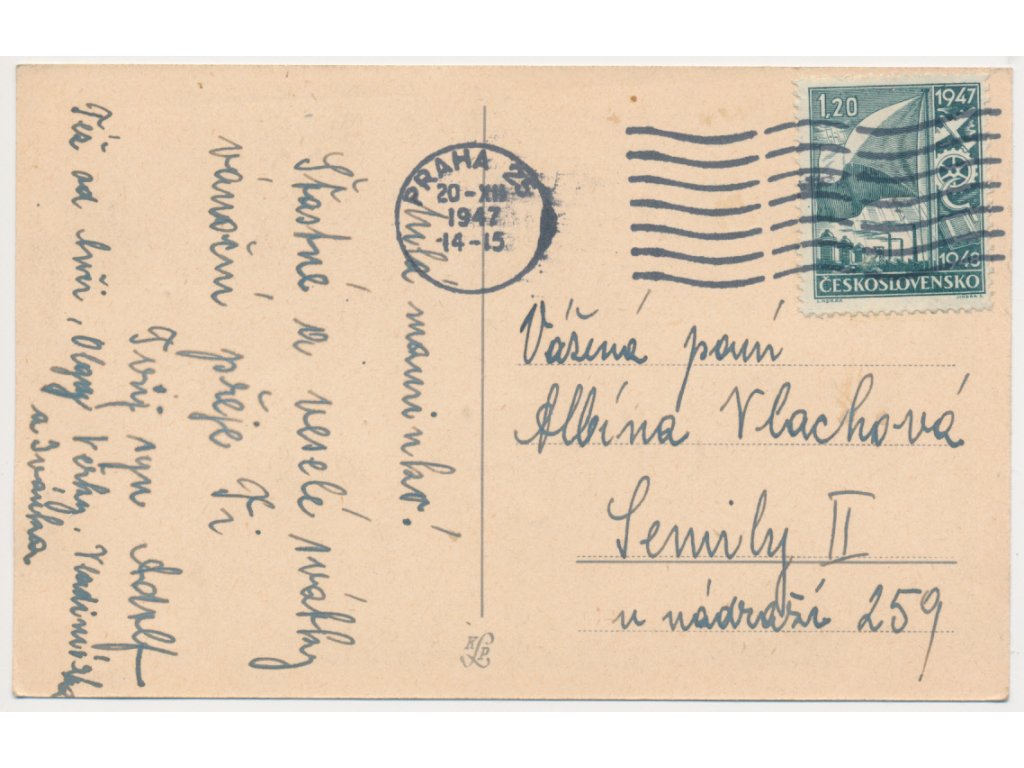 Milá maminko!
Šťastné a veselé svátky
vánoční přeje Ti
Tvůj syn Adolf
Též od Huči, Olgy, Věrky, Vladimírka
a Ivánka
PRAHA 25
20-XII
1947
14-15
1,20
1947
1948
ČESKOSLOVENSKO
Vážená paní
Albína Vlachová
Semily II
u nádraží 259
KLP